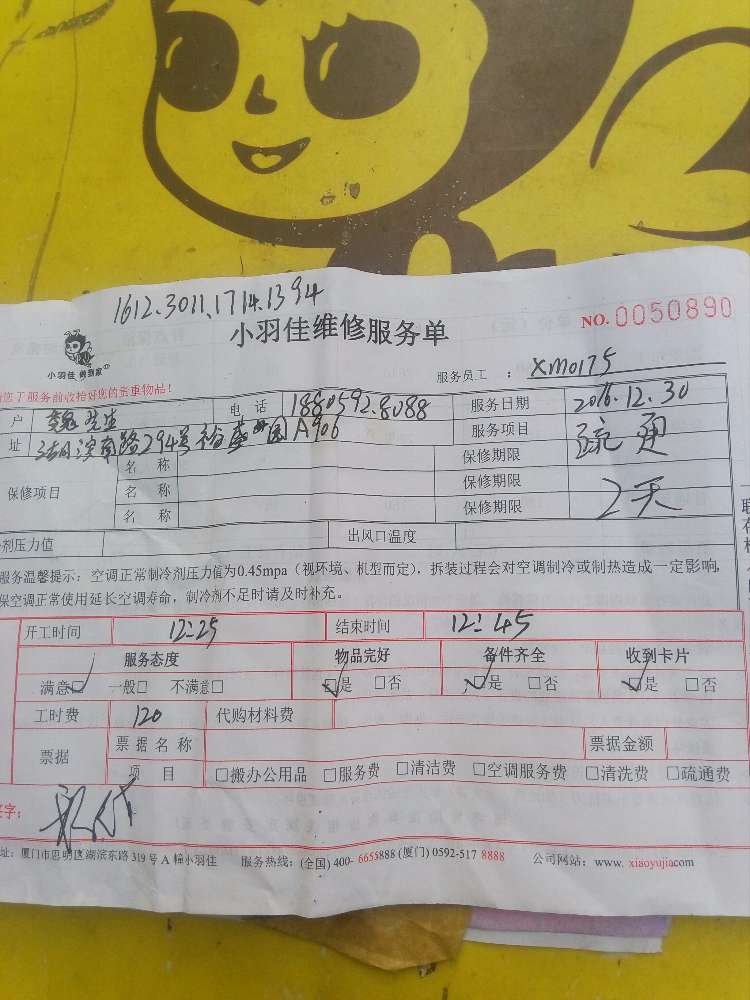 1612.3011.1714.1394
小羽佳维修服务单
NO.0050890
小羽佳 做到家
服务员工: XM0175
您了服务前收拾好您的贵重物品!
户 魏先生 电话 18805928088 服务日期 2016.12.30
址 湖滨南路294号裕 园A906 服务项目 疏通
保修项目 名称 保修期限
名称 保修期限
名称 保修期限 2天
剂压力值 出风口温度
服务温馨提示:空调正常制冷剂压力值为0.45mpa(视环境、机型而定),拆装过程会对空调制冷或制热造成一定影响,
保空调正常使用延长空调寿命,制冷剂不足时请及时补充。
开工时间 12:25 结束时间 12:45
服务态度 物品完好 备件齐全 收到卡片
满意☑ 一般□ 不满意□ ☑是 □否 ☑是 □否 ☑是 □否
工时费 120 代购材料费
票据 票据名称 票据金额
项目 □搬办公用品 □服务费 □清洁费 □空调服务费 □清洗费 □疏通费
签字:
址:厦门市思明区湖滨东路319号A幢小羽佳 服务热线:(全国)400-6655888(厦门)0592-5178888 公司网站:www.xiaoyujiacom